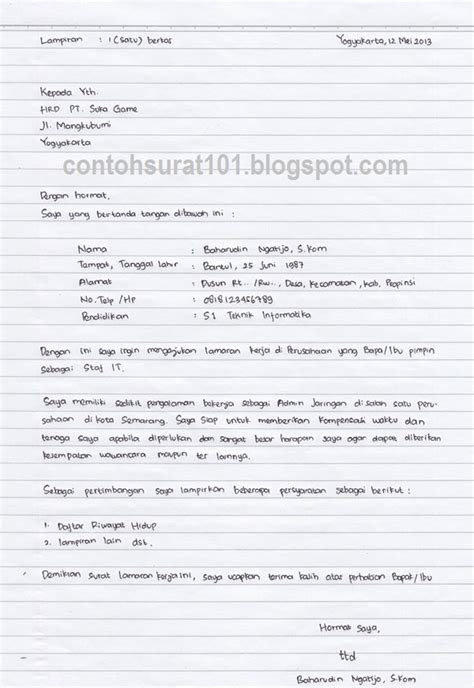 Lampiran : 1 (satu) berkas Yogyakarta, 12 Mei 2013
Kepada Yth.
HRD PT. Suka Game
Jl. Mangkubumi
Yogyakarta
contohsurat101.blogspot.com
Dengan hormat,
Saya yang bertanda tangan dibawah ini :
Nama : Baharudin Ngatijo, S.Kom
Tempat, Tanggal lahir : Bantul, 25 Juni 1987
Alamat : Dusun Rt.. /Rw.., Desa, Kecamatan, Kab, Propinsi
No. Telp /HP : 0818123456789
Pendidikan : S1 Teknik Informatika
Dengan ini saya ingin mengajukan lamaran kerja di Perusahaan yang Bapa/Ibu pimpin
sebagai Staf IT.
Saya memiliki sedikit pengalaman bekerja sebagai Admin Jaringan di salah satu peru-
sahaan di kota Semarang. Saya siap untuk memberikan kompensasi waktu dan
tenaga saya apabila diperlukan dan sangat besar harapan saya agar dapat diberikan
kesempatan wawancara maupun tes lainnya.
Sebagai pertimbangan saya lampirkan beberapa persyaratan sebagai berikut :
1. Daftar Riwayat Hidup
2. lampiran lain dst.
Demikian surat lamaran kerja ini, saya ucapkan terima kasih atas perhatian Bapak/Ibu
Hormat Saya,
ttd
Baharudin Ngatijo, S.Kom